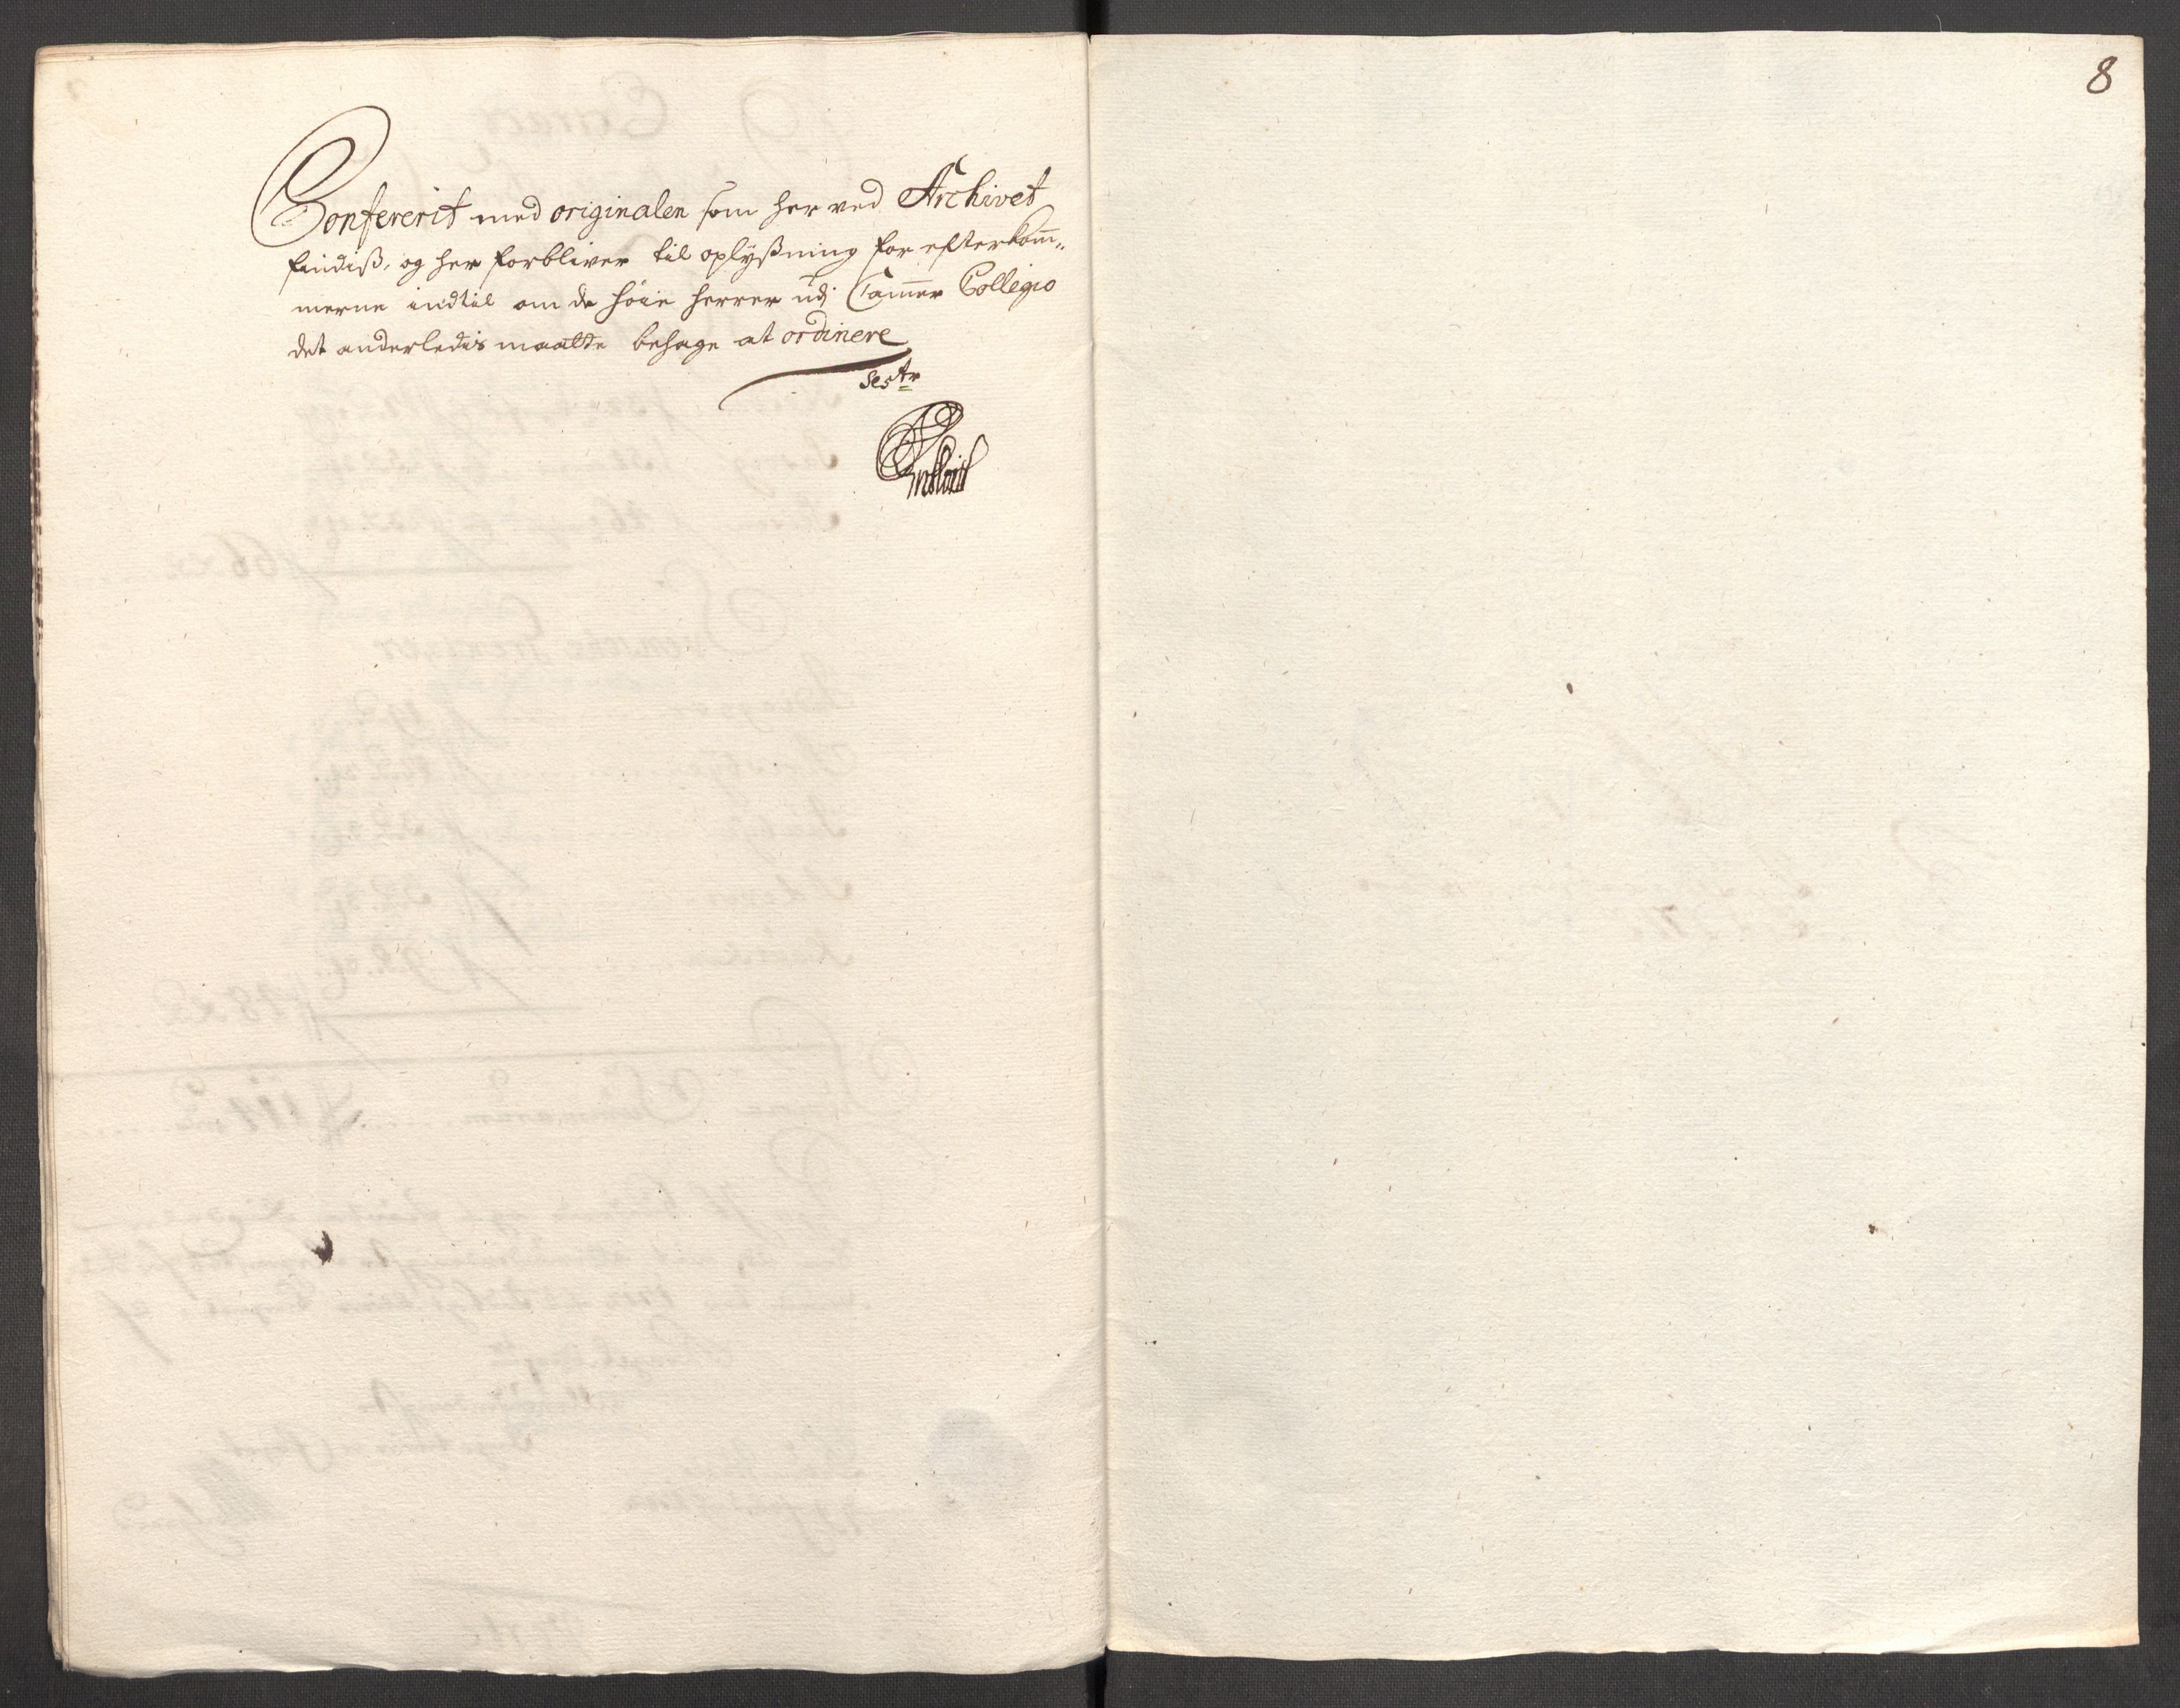 8
Confererit med originalen som her ved Archivet
findiß, og her forbliver til oplyßning for efterkom̅„
merne indtil om de høie herrer udj Cam̅er Collegio
det anderledis maatte behage at ordinere